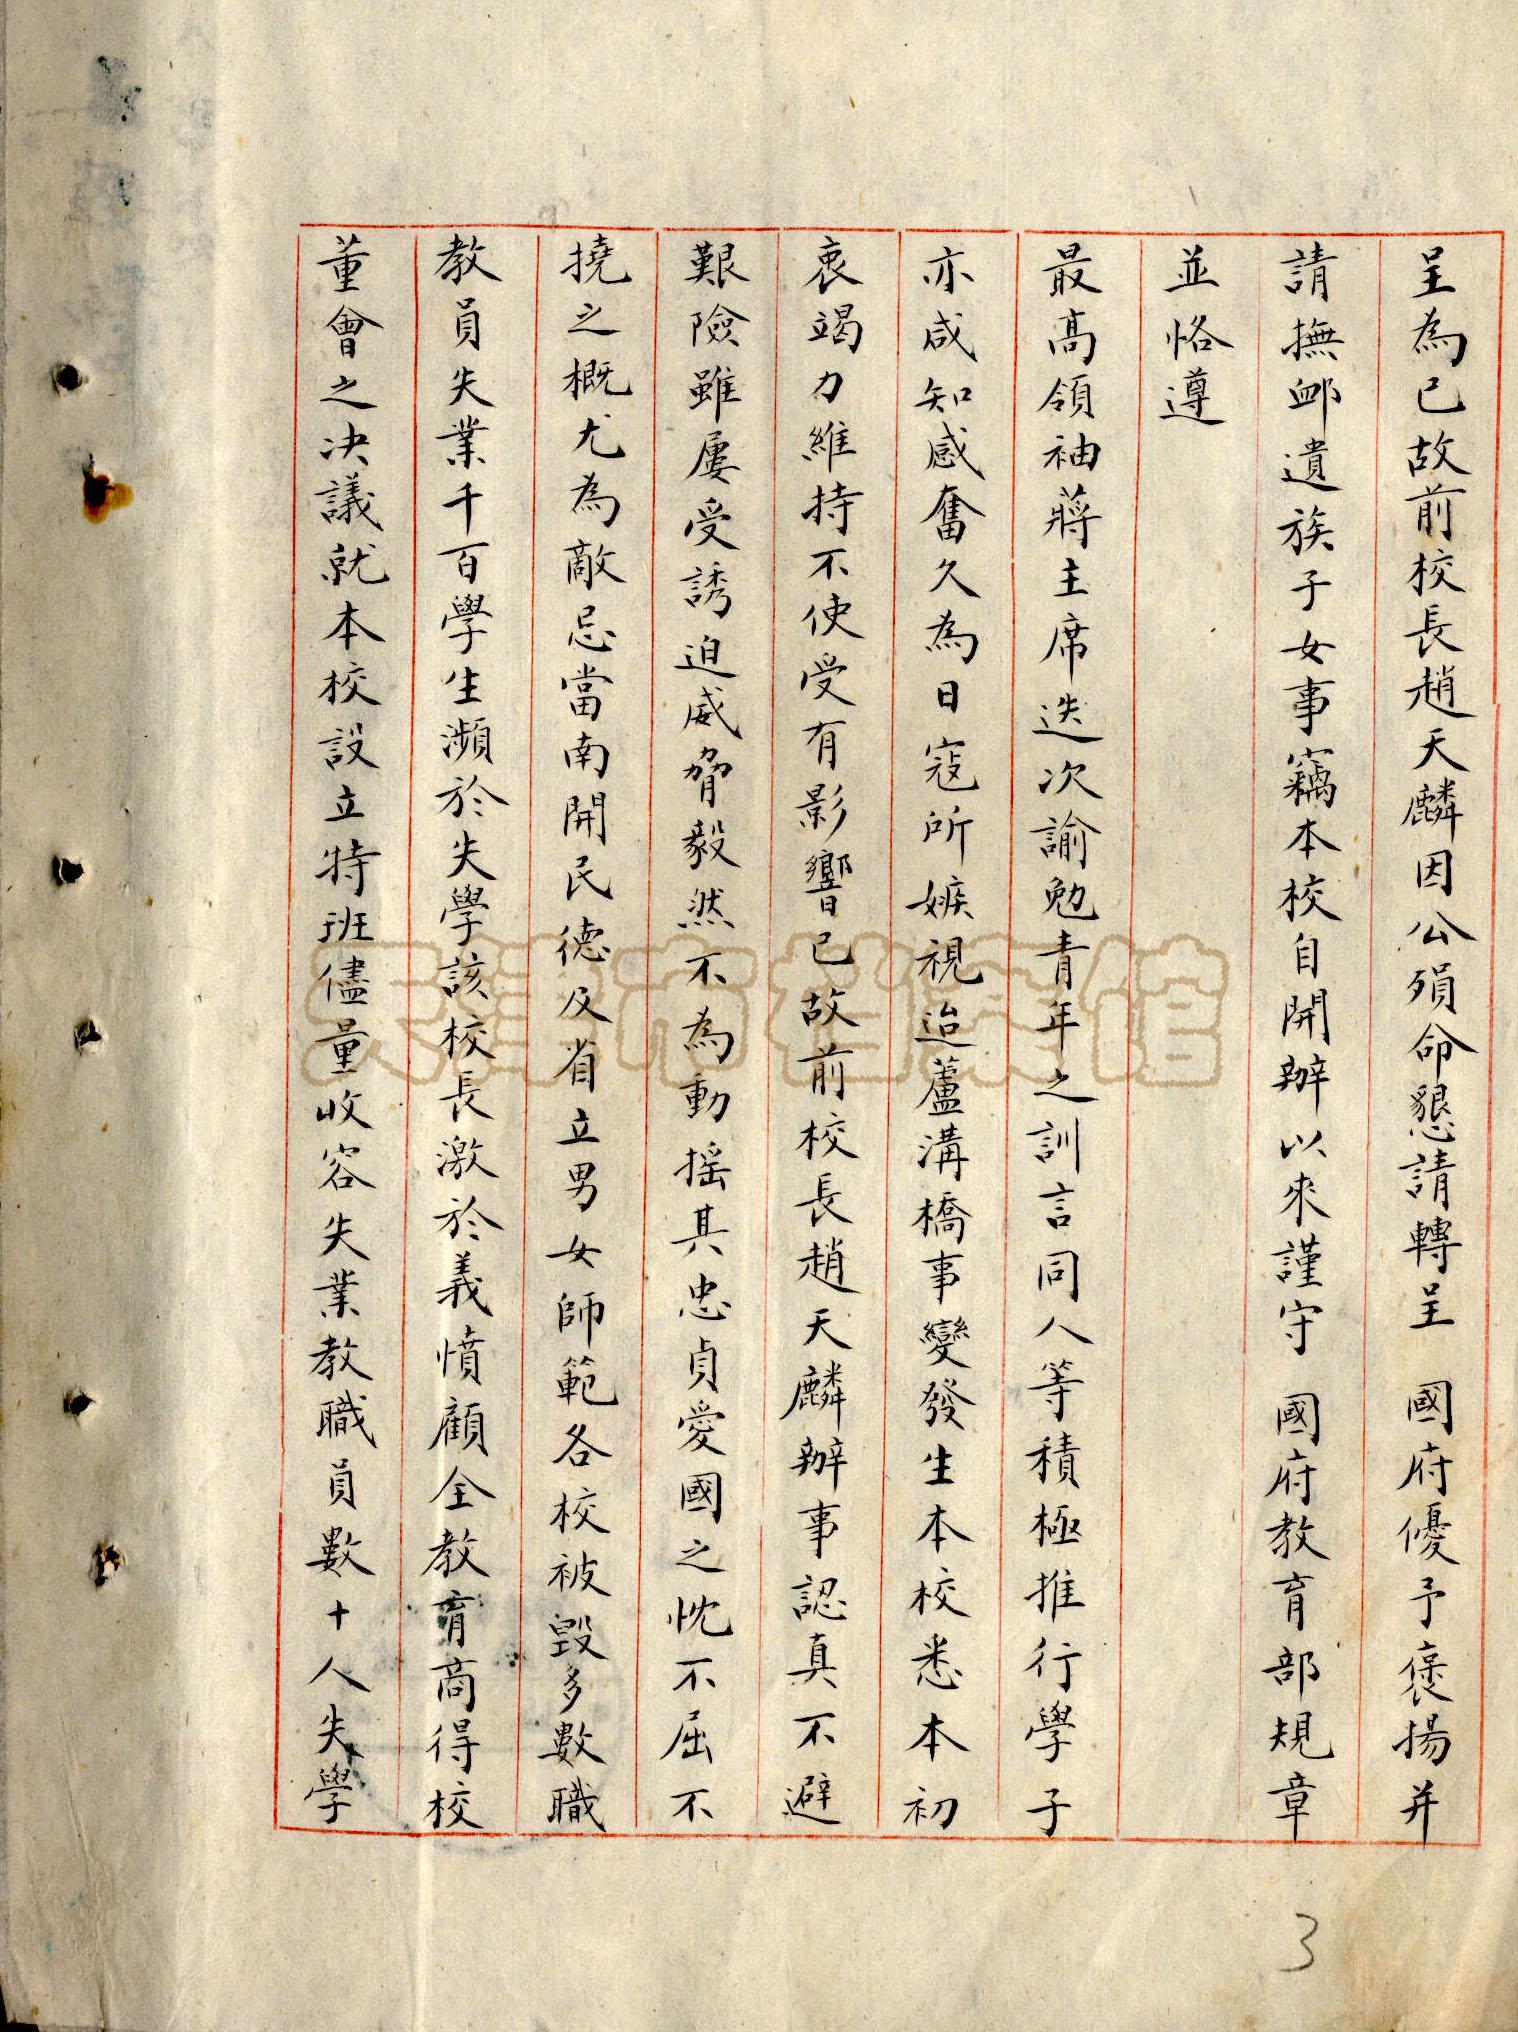 呈為已故前校長趙天麟因公殞命懇請轉呈　國府優予褒揚并
請撫卹遺族子女事竊本校自開辦以來謹守　國府教育部規章
並恪遵
最高領袖蔣主席迭次諭勉青年之訓言同人等積極推行學子
亦咸知感奮久為日寇所嫉視迨蘆溝橋事變發生本校悉本初
衷竭力維持不使受有影響已故前校長趙天麟辦事認真不避
艱險雖屢受誘迫威脅毅然不為動搖其忠貞愛國之忱不屈不
撓之概尤為敵忌當南開民德及省立男女師範各校被毀多數職
教員失業千百學生瀕於失學該校長激於義憤顧全教育商得校
董會之決議就本校設立特班儘量收容失業教職員數十人失學
3
天津市档案馆